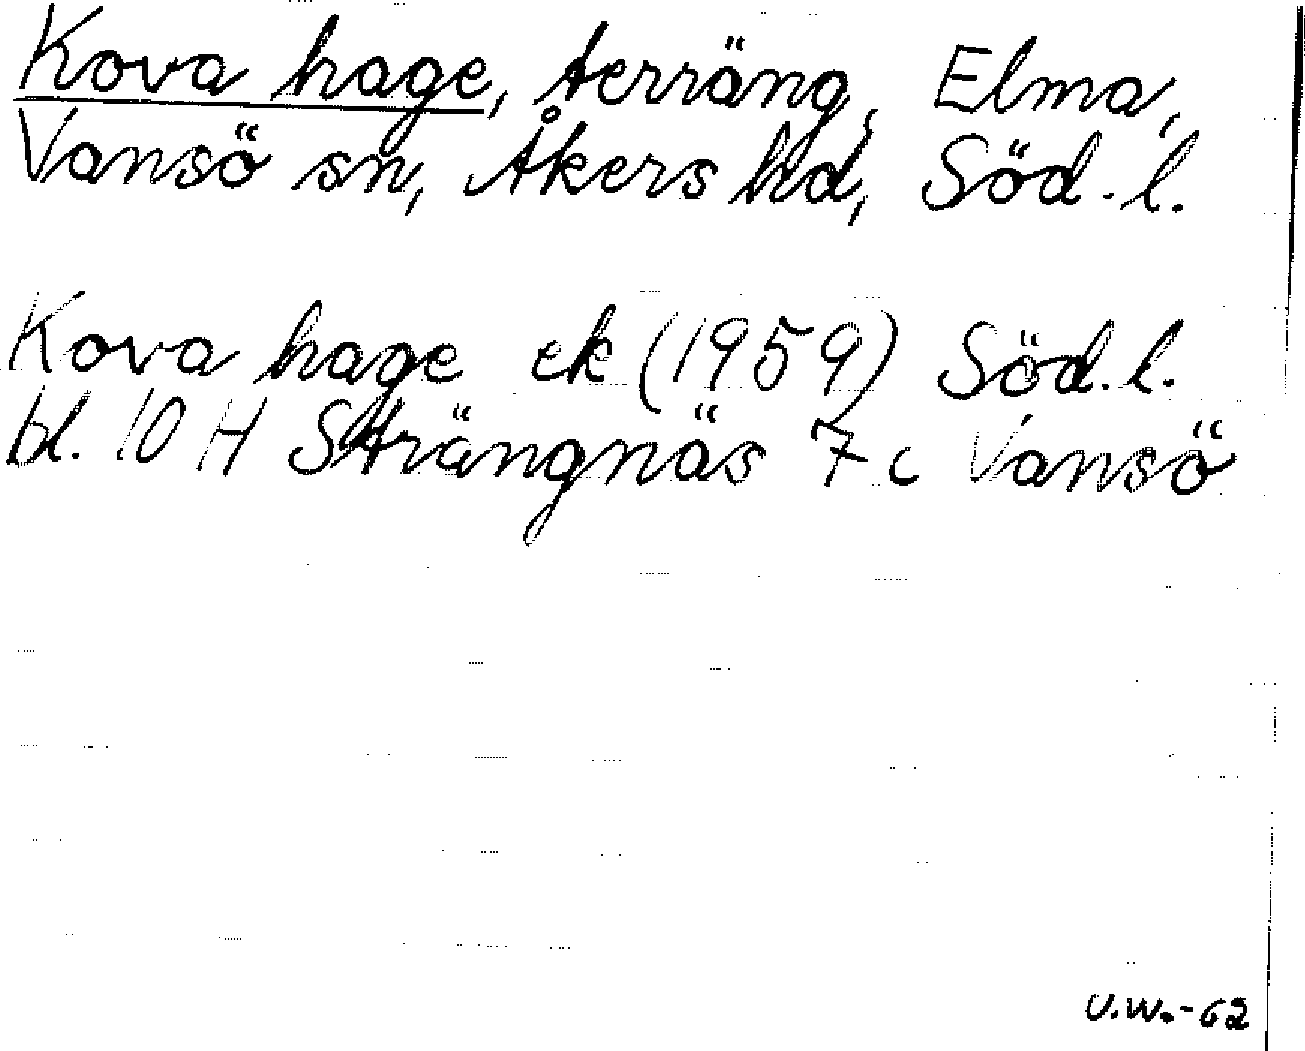 Kova hage, terräng, Elma,
Vansö sn, Åkers hd, Söd. l.
Kova hage ek (1959) Söd. l.
bl. 10 H Strängnäs 7 c Vansö
U.W.-62